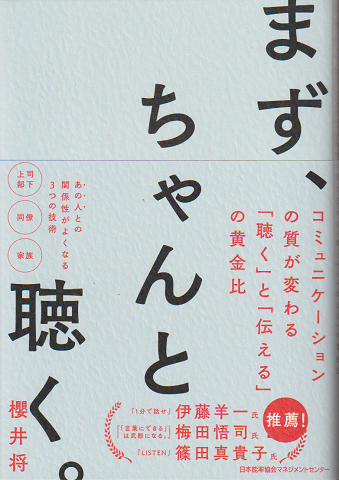 まず、
ちゃんと
聴く。
コミュニケーション
の質が変わる
「聴く」と「伝える」
の黄金比
あの人との
関係性がよくなる
3つの技術
上司
部下
同僚
家族
推薦!
「1分で話せ」 伊藤羊一氏
「「言葉にできる」は武器になる。」 梅田悟司氏
「LISTEN」 篠田真貴子氏
櫻井将
日本能率協会マネジメントセンター